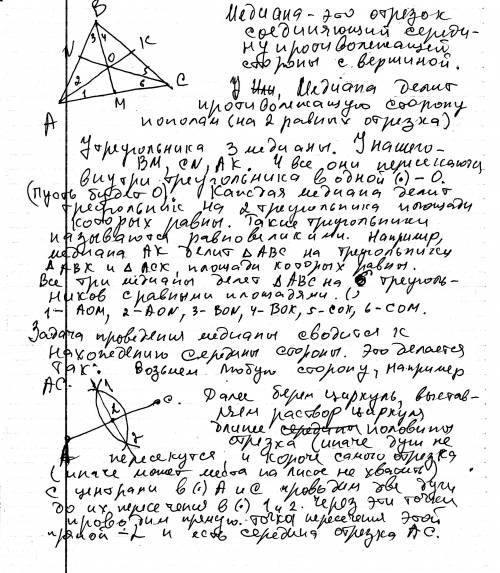 B
N
K
3 4
O
2
5
1
6
A
M
C
Медиана - это отрезок
соединяющий середи-
ну противолежащей
стороны с вершиной.
У Медиана делит
противолежащую сторону
пополам (на 2 равных отрезка)
У треугольника 3 медианы. У нашего-
BM, CN, AK. И все они пересекаются
внутри треугольника в одной (·) - O.
(Пусть будет O). Каждая медиана делит
треугольник на 2 треугольника площади
которых равны. Такие треугольники
называются равновеликими. Например,
медиана AK делит △ABC на треугольники
△ABK и △ACK, площади которых равны.
Все три медианы делят △ABC на 6 треуголь-
ников с равными площадями. ()
1- AOM, 2-AON, 3- BON, 4- BOK, 5-COK, 6-COM.
Задача проведения медианы сводится к
нахождению середины стороны. Это делается
так: Возьмем любую сторону, например
AC.
1
C.
2
A
Далее берем циркуль, выстав-
ляем раствор циркуля
длинее середины половины
отрезка (иначе дуги не
пересекутся, и короче самого отрезка
(иначе может места на листе не хватить)
С центрами в (·) A и C проводим две дуги
до их пересечения в (·) 1 и 2. Через эти точки
проводим прямую. Точка пересечения этой
прямой - L и есть середина отрезка AC.